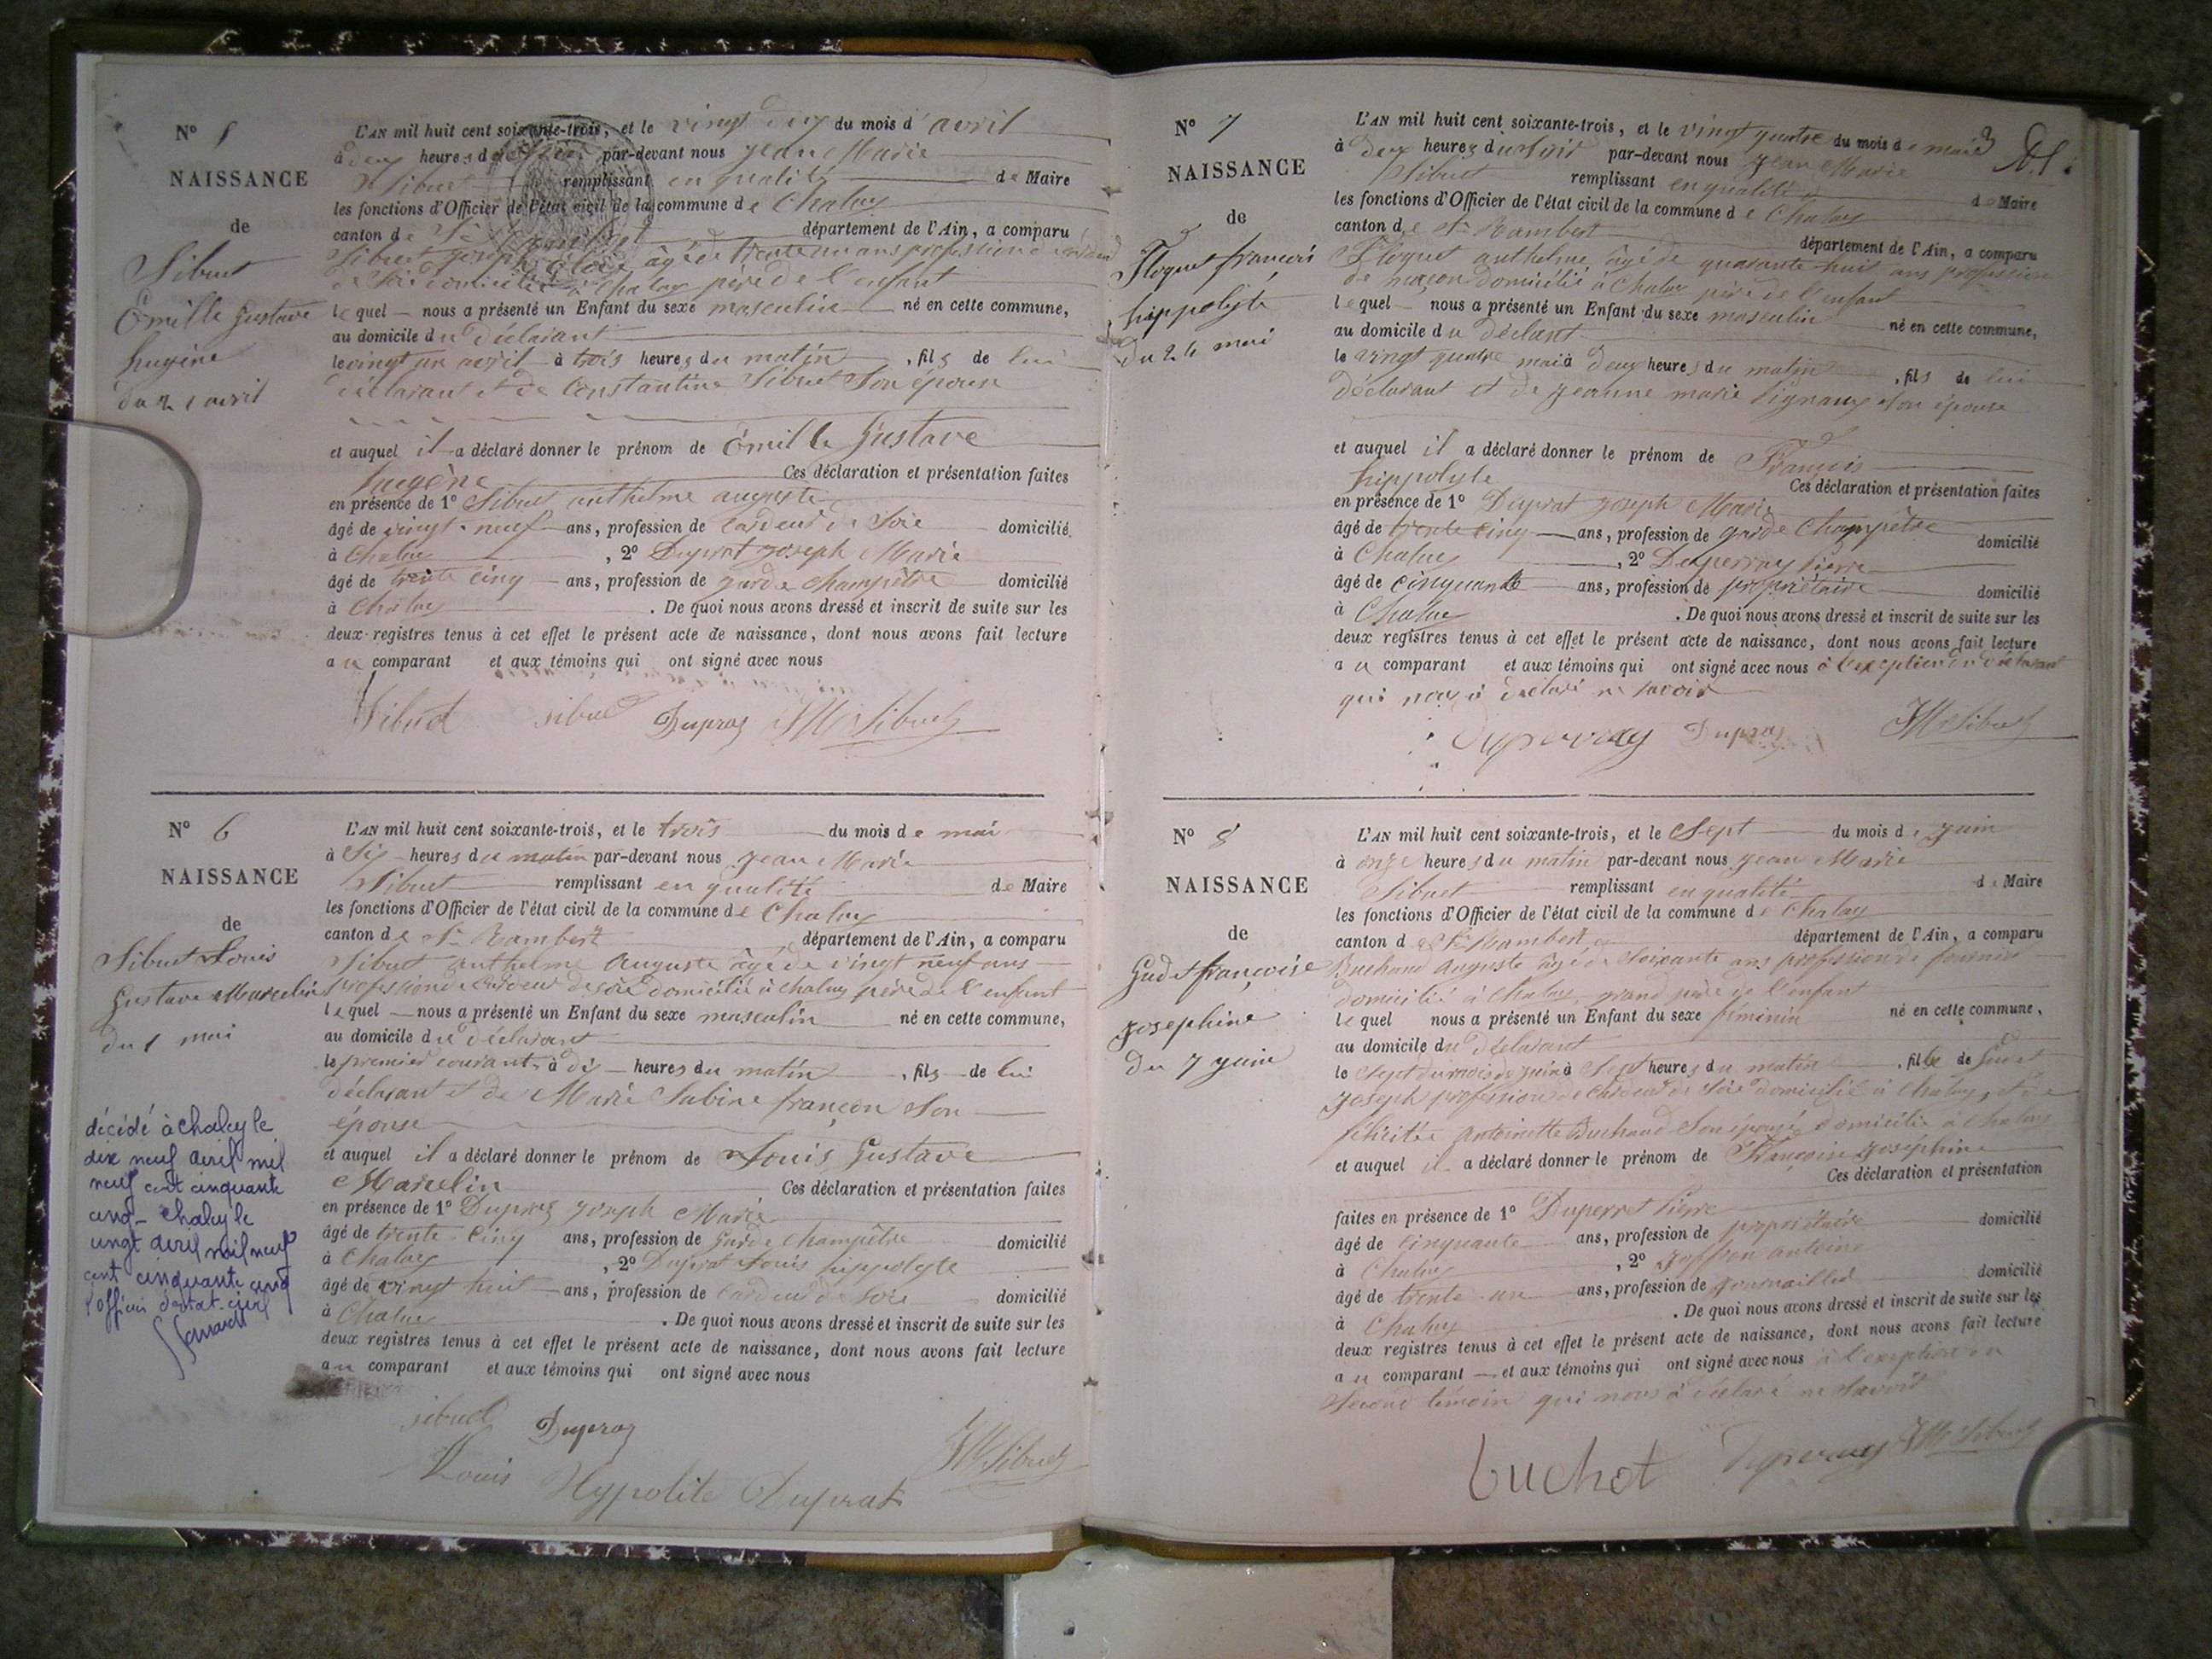 N° 5
NAISSANCE
de
Sibuet
Emille Gustave
hugène
du 21 avril
L'AN mil huit cent soixante-trois, et le vingt deux du mois d'avril
à deux heures du par-devant nous jean Marie
Sibuet remplissant en qualité de Maire
les fonctions d'Officier de l'état civil de la commune de Chaley
canton de St Rambert département de l'Ain, a comparu
Sibuet joseph âgé de trente un ans profession de
de Soie domicilié à Chaley père de l'enfant
lequel nous a présenté un Enfant du sexe masculin né en cette commune,
au domicile du déclarant
le vingt un avril à trois heures du matin, fils de lui
déclarant et de Constantine Sibuet Son épouse
et auquel il a déclaré donner le prénom de Emille Gustave
hugène Ces déclaration et présentation faites
en présence de 1° Sibuet anthelme auguste
âgé de vingt-neuf ans, profession de Cardeur de Soie domicilié
à Chaley, 2° Duprat joseph Marie
âgé de trente cinq ans, profession de garde champêtre domicilié
à Chaley. De quoi nous avons dressé et inscrit de suite sur les
deux registres tenus à cet effet le présent acte de naissance, dont nous avons fait lecture
au comparant et aux témoins qui ont signé avec nous
Sibuet sibuet Dupraz JM Sibuet
N° 6
NAISSANCE
de
Sibuet Louis
Gustave Marcelin
du 1 mai
décédé à Chaley le
dix neuf avril mil
neuf cent cinquante
cinq - Chaley le
vingt avril mil neuf
cent cinquante cinq
l'officier d'état-civil
L'AN mil huit cent soixante-trois, et le trois du mois de mai
à Six heures du matin par-devant nous jean Marie
Sibuet remplissant en qualité de Maire
les fonctions d'Officier de l'état civil de la commune de Chaley
canton de St Rambert département de l'Ain, a comparu
Sibuet anthelme Auguste âgé de vingt neuf ans
profession de Cardeur de soie domicilié à chaley père de l'enfant
lequel nous a présenté un Enfant du sexe masculin né en cette commune,
au domicile du déclarant
le premier courant à dix heures du matin, fils de lui
déclarant et de Marie Sabine françon Son
épouse
et auquel il a déclaré donner le prénom de Louis Gustave
Marcelin Ces déclaration et présentation faites
en présence de 1° Dupraz joseph Marie
âgé de trente-cinq ans, profession de Garde Champêtre domicilié
à Chaley, 2° Duprat Louis hippolyte
âgé de vingt huit ans, profession de Cardeur de Soie domicilié
à Chaley. De quoi nous avons dressé et inscrit de suite sur les
deux registres tenus à cet effet le présent acte de naissance, dont nous avons fait lecture
au comparant et aux témoins qui ont signé avec nous
sibuet Dupraz JM Sibuet
Louis Hypolite Duprat
3
N° 7
NAISSANCE
de
Floquet françois
hippolyte
du 24 mai
L'AN mil huit cent soixante-trois, et le vingt quatre du mois de mai
à deux heures du soir par-devant nous jean Marie
Sibuet remplissant en qualité de Maire
les fonctions d'Officier de l'état civil de la commune de Chaley
canton de St Rambert département de l'Ain, a comparu
Floquet anthelme âgé de quarante huit ans profession
de maçon domicilié à Chaley père de l'enfant
lequel nous a présenté un Enfant du sexe masculin né en cette commune,
au domicile du déclarant
le vingt quatre mai à deux heures du matin, fils de lui
déclarant et de jeanne marie Son épouse
et auquel il a déclaré donner le prénom de François
hippolyte Ces déclaration et présentation faites
en présence de 1° Duprat joseph Marie
âgé de trente cinq ans, profession de garde Champêtre domicilié
à Chaley, 2° Duperray Pierre
âgé de cinquante ans, profession de propriétaire domicilié
à Chaley. De quoi nous avons dressé et inscrit de suite sur les
deux registres tenus à cet effet le présent acte de naissance, dont nous avons fait lecture
au comparant et aux témoins qui ont signé avec nous à l'exception du déclarant
qui nous a déclaré ne savoir
Duperray Dupraz JM Sibuet
N° 8
NAISSANCE
de
Gudet françoise
josephine
du 7 juin
L'AN mil huit cent soixante-trois, et le Sept du mois de juin
à onze heures du matin par-devant nous jean Marie
Sibuet remplissant en qualité de Maire
les fonctions d'Officier de l'état civil de la commune de Chaley
canton de St Rambert département de l'Ain, a comparu
Buchaud Auguste âgé de Soixante ans profession de
domicilié à Chaley grand père de l'enfant
lequel nous a présenté un Enfant du sexe féminin né en cette commune,
au domicile du déclarant
le Sept du mois de juin à Sept heures du matin, fille de Gudet
joseph profession de Cardeur de Soie domicilié à Chaley, et de
félicitée Antoinette Buchaud Son épouse domicilié à Chaley
et auquel il a déclaré donner le prénom de Françoise joséphine
Ces déclaration et présentation
faites en présence de 1° Duperret Pierre
âgé de Cinquante ans, profession de propriétaire domicilié
à Chaley, 2° antoine
âgé de trente-un ans, profession de journaillier domicilié
à Chaley. De quoi nous avons dressé et inscrit de suite sur les
deux registres tenus à cet effet le présent acte de naissance, dont nous avons fait lecture
au comparant et aux témoins qui ont signé avec nous à l'exception du
Second témoin qui nous a déclaré ne Savoir
buchot Duperray JM Sibuet